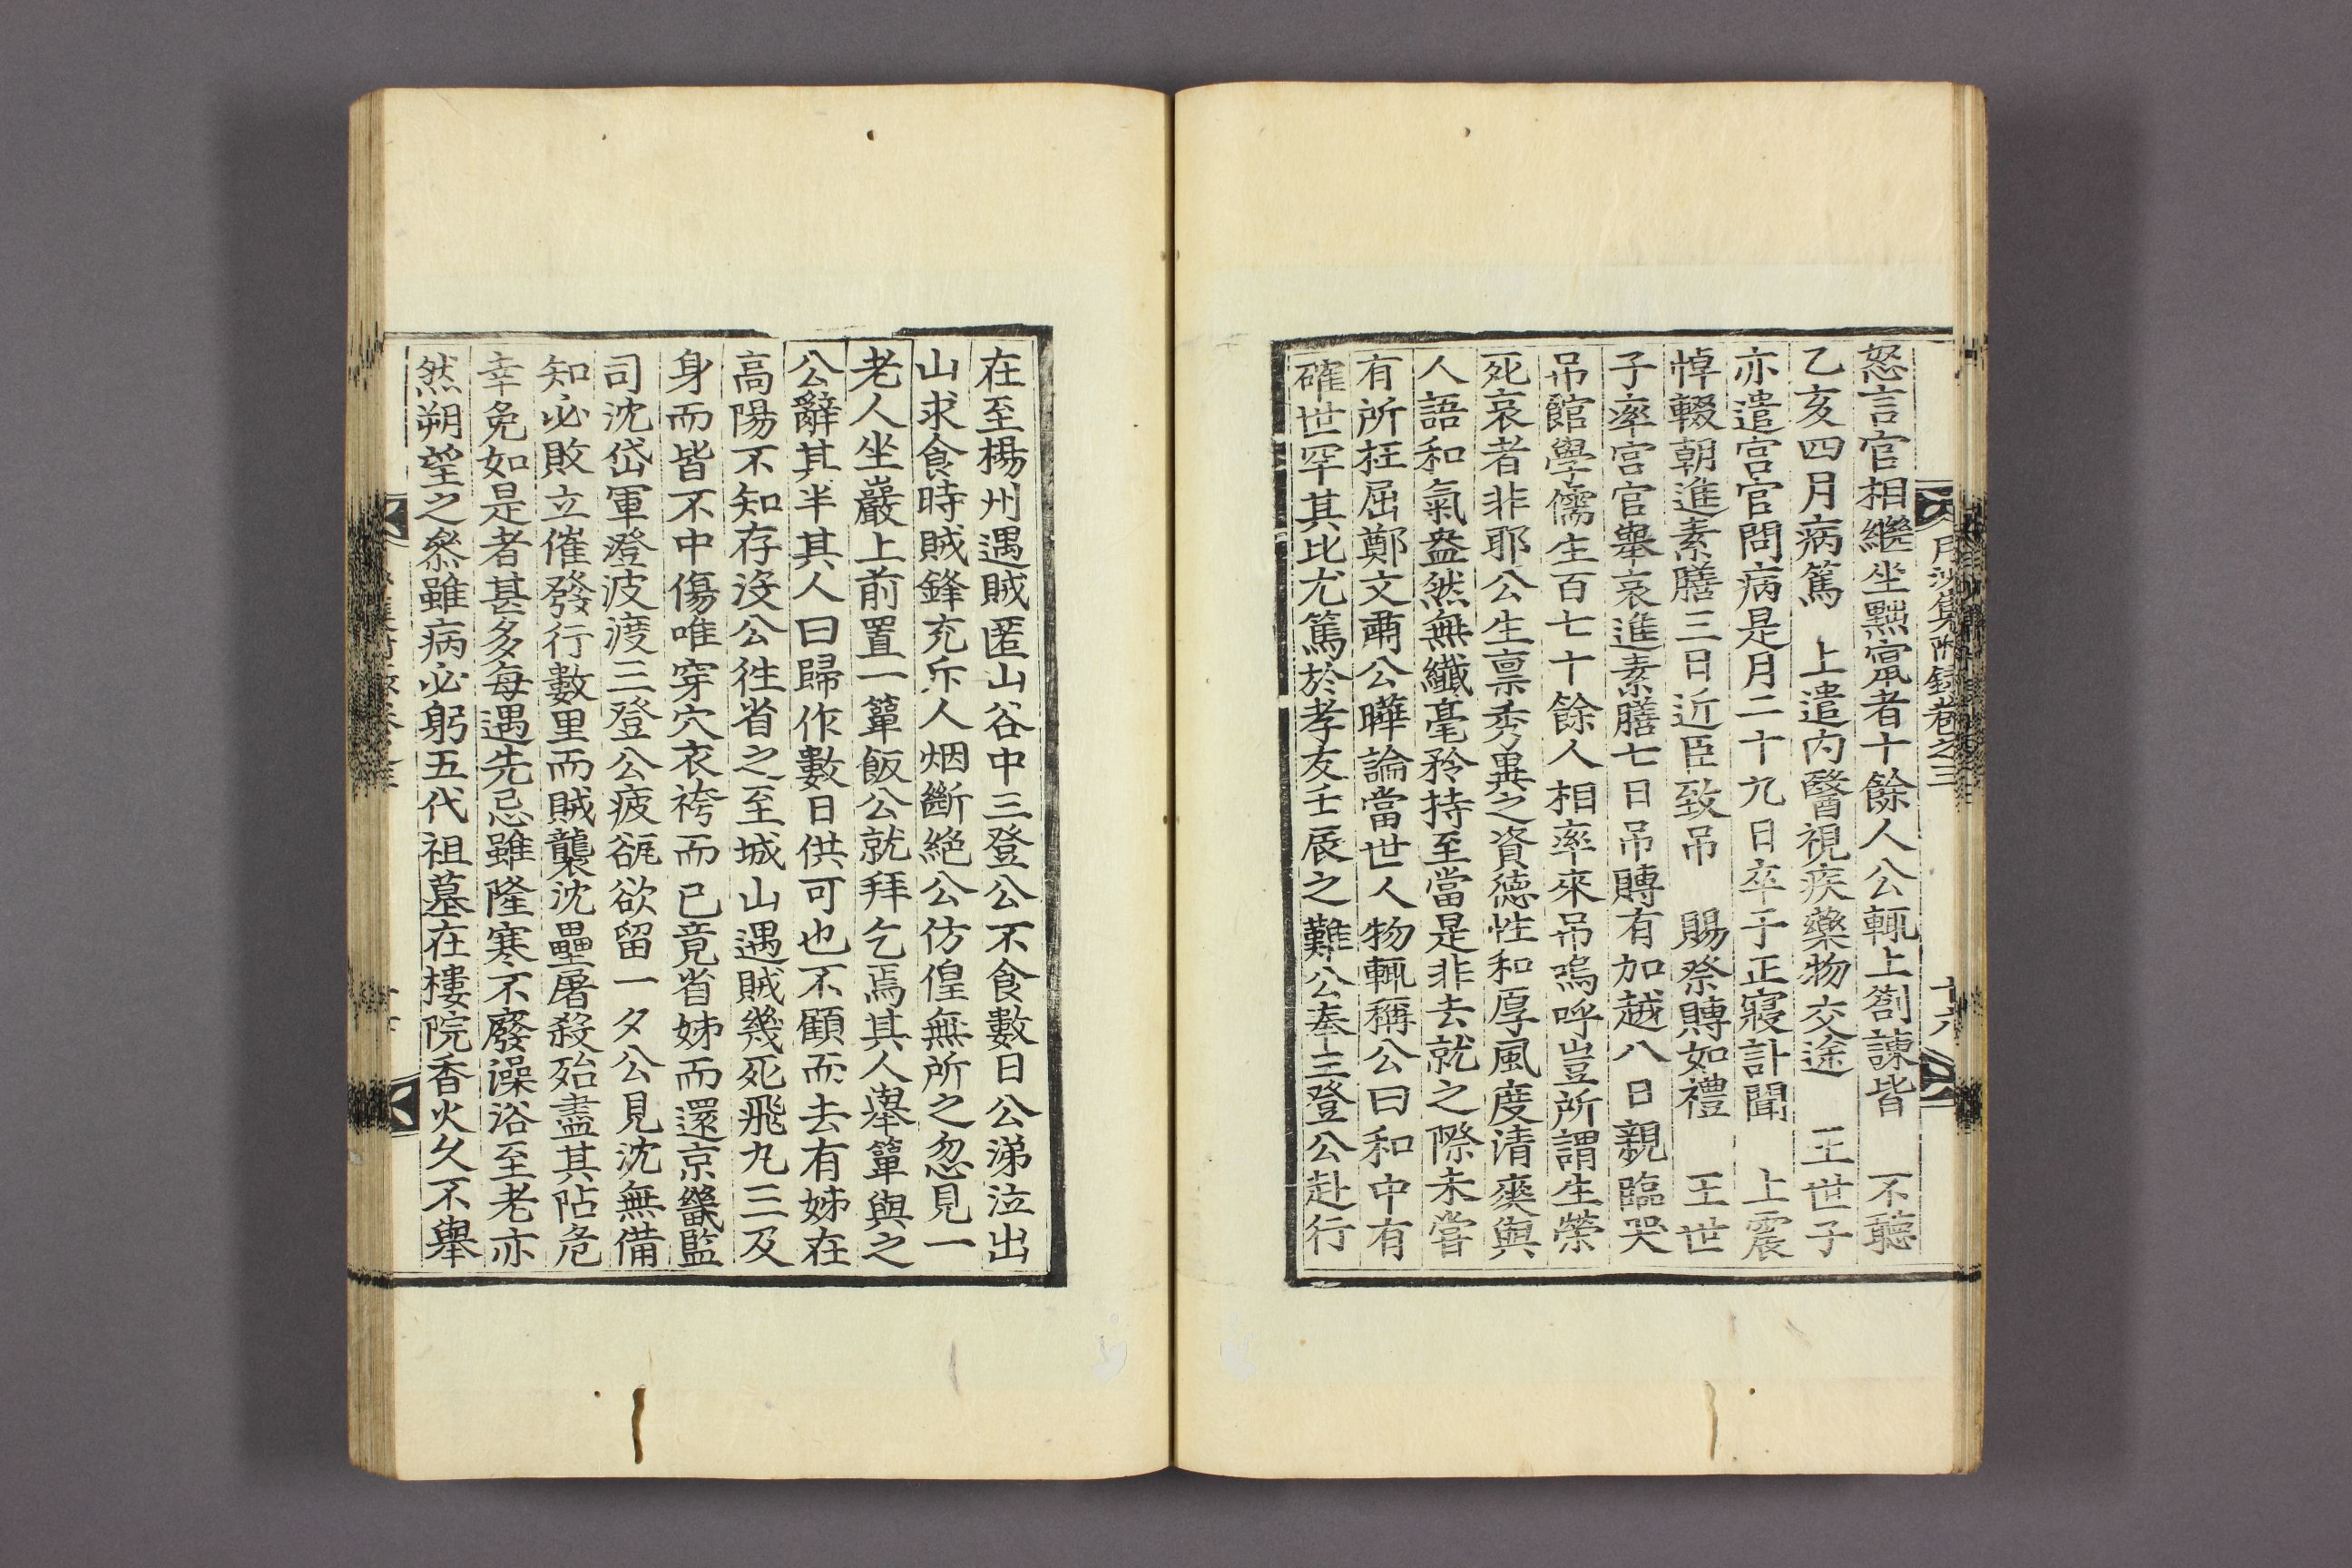 怒言官相繼坐黜竄者十餘人公輒上劄諫皆　不聽
乙亥四月病篤　上遣内醫視疾藥物交途　王世子
亦遣宮官問病是月二十九日卒于正寢訃聞　上震
悼輟朝進素膳三日近臣致吊　賜祭賻如禮　王世
子率宮官擧哀進素膳七日吊賻有加越八日親臨哭
吊館學儒生百七十餘人相率來吊嗚呼豈所謂生榮
死哀者非耶公生禀秀異之資德性和厚風度淸爽與
人語和氣盎然無纖毫矜持至當是非去就之際未嘗
有所枉屈鄭文肅公曄論當世人物輒稱公曰和中有
確世罕其比尤篤於孝友壬辰之難公奉三登公赴行
月沙集附錄卷之三
十六
在至楊州遇賊匿山谷中三登公不食數日公涕泣出
山求食時賊鋒充斥人烟斷絶公彷徨無所之忽見一
老人坐巖上前置一簞飯公就拜乞焉其人擧簞與之
公辭其半其人曰歸作數日供可也不顧而去有姊在
高陽不知存沒公徃省之至城山遇賊幾死飛丸三及
身而皆不中傷唯穿穴衣袴而已竟省姊而還京畿監
司沈岱軍澄波渡三登公疲㼌欲留一夕公見沈無備
知必敗立催發行數里而賊襲沈壘屠殺殆盡其阽危
幸免如是者甚多每遇先忌雖隆寒不廢澡浴至老亦
然朔望之叅雖病必躬五代祖墓在樓院香火久不擧